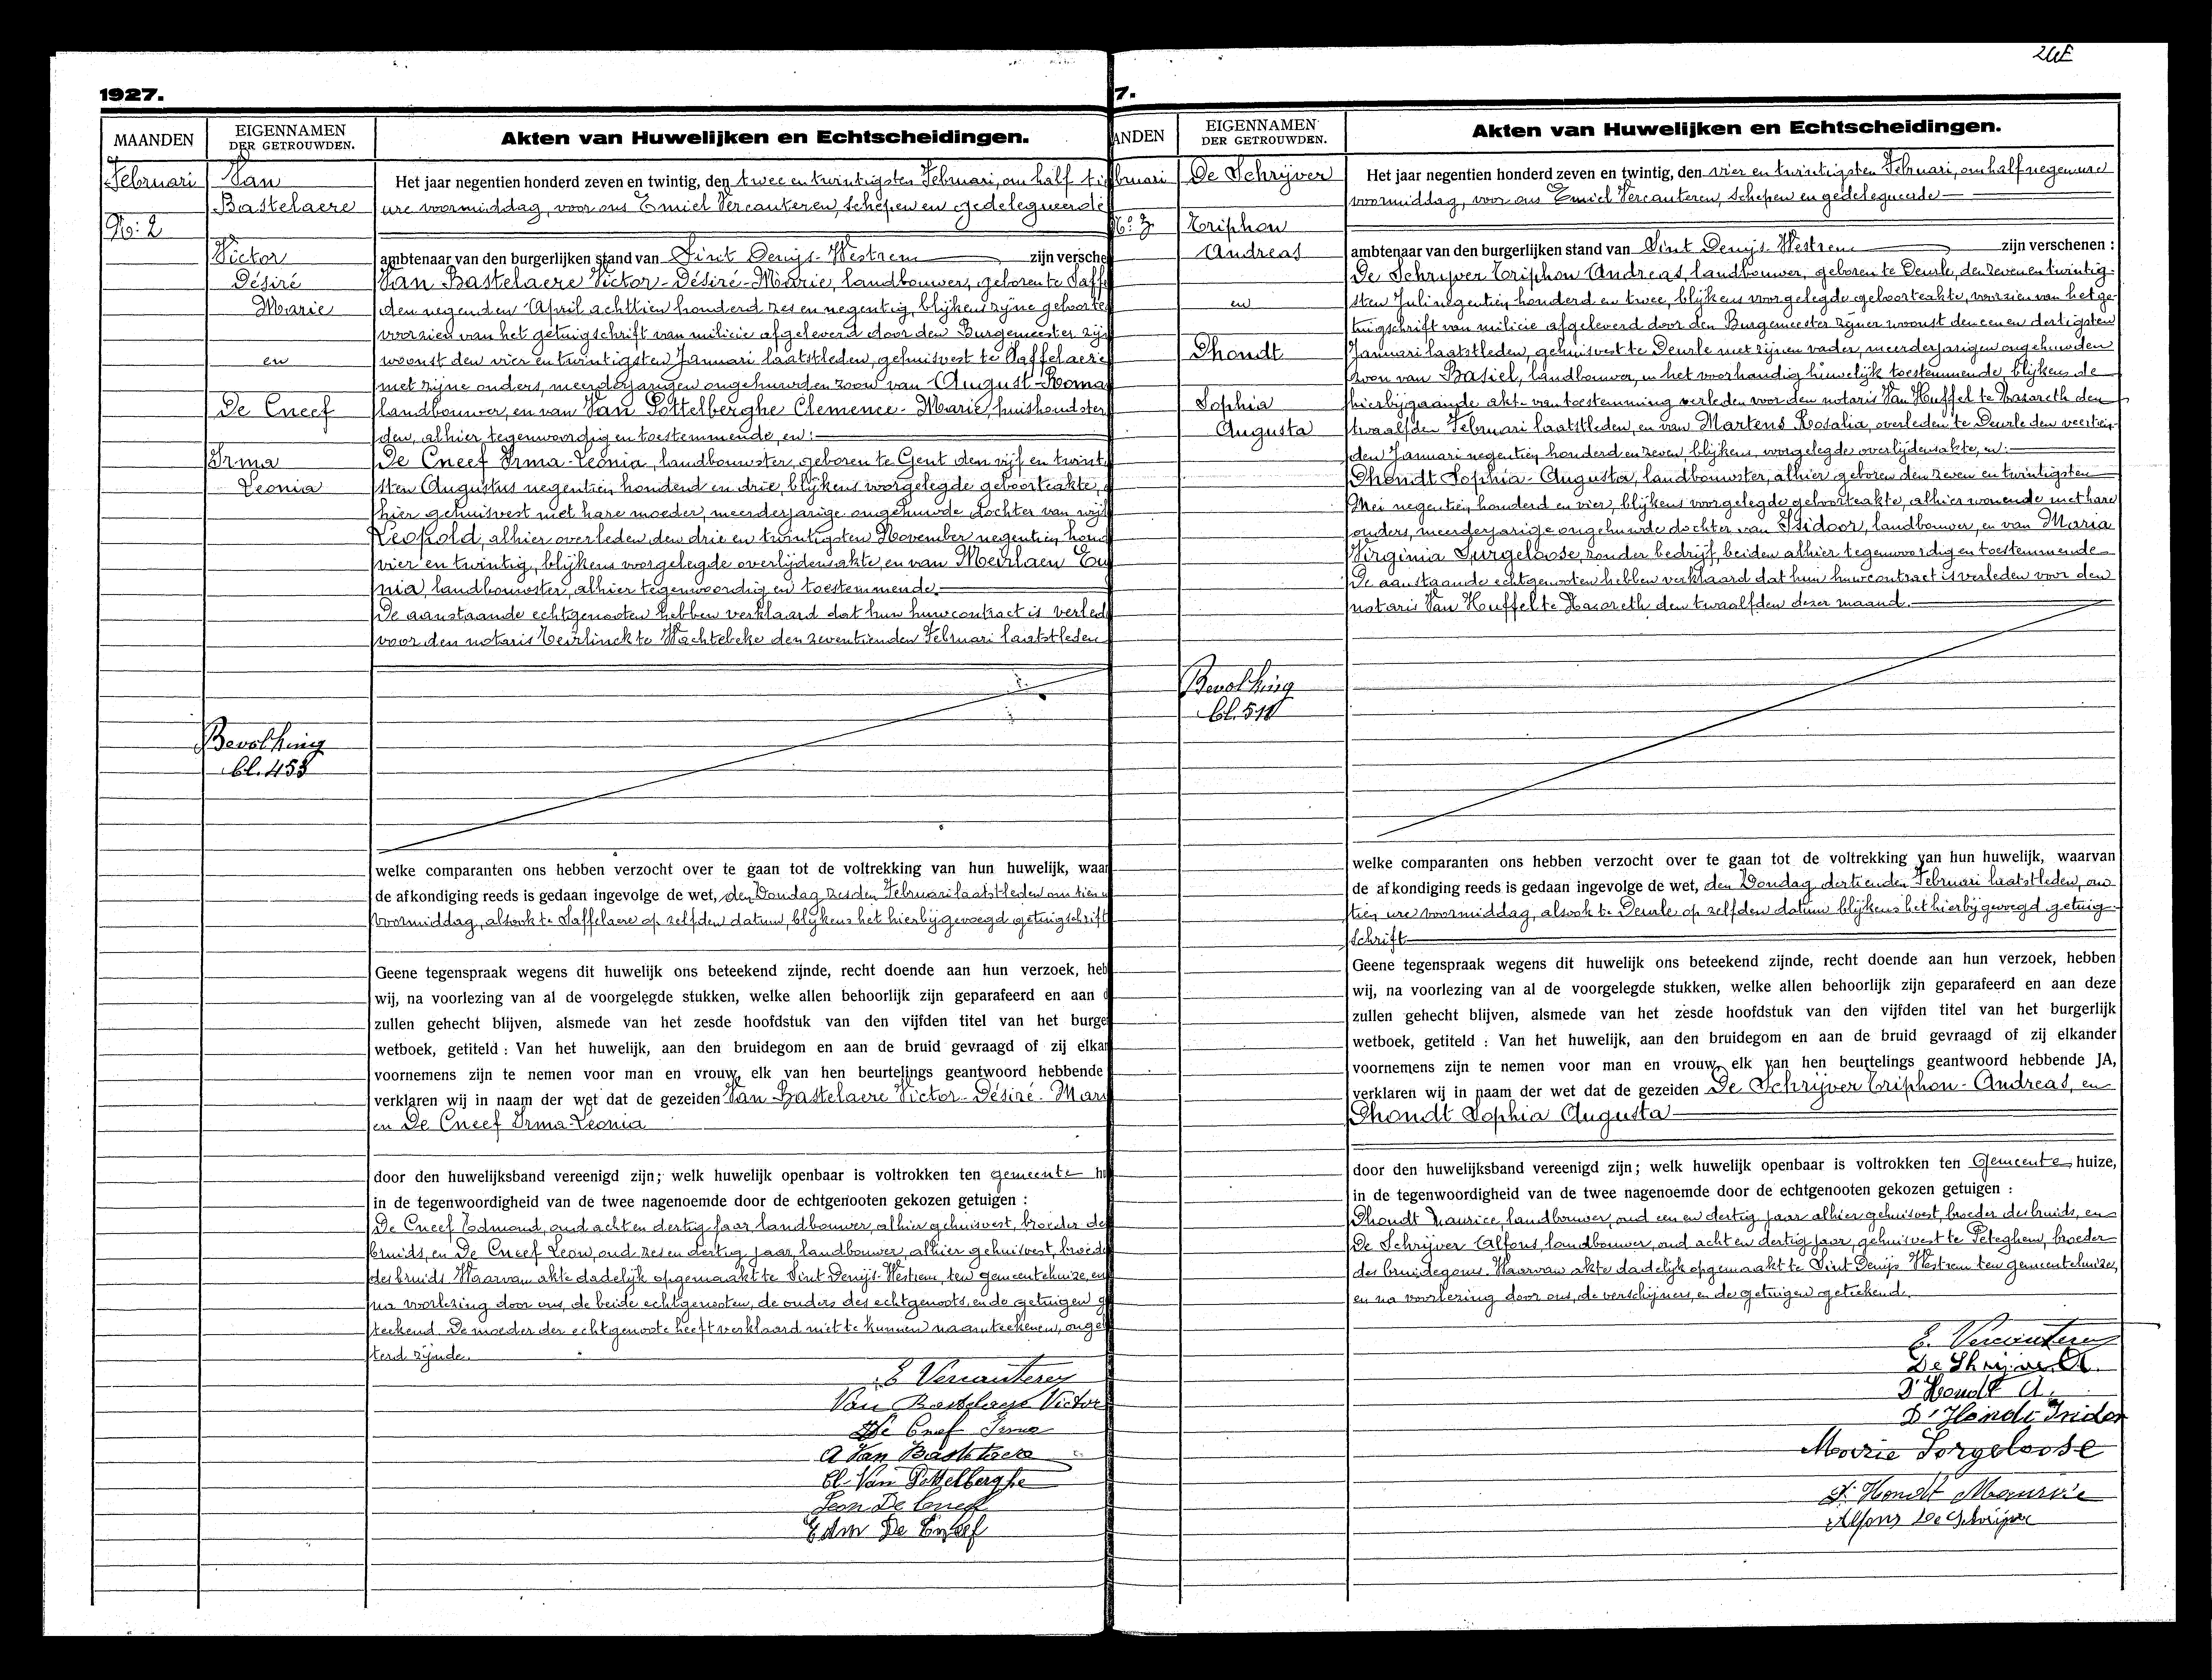 1927.
MAANDEN
EIGENNAMEN
DER GETROUWDEN.
Akten van Huwelijken en Echtscheidingen.
Februari
No: 2
Van
Bastelaere
Victor
Désiré
Marie
en
De Cneef
Irma
Leonia
Bevolking
bl. 453
Het jaar negentien honderd zeven en twintig, den twee en twintigsten Februari, om half ti
ure voormiddag, voor ons Emiel Vercauteren, schepen en gedelegueerde
ambtenaar van den burgerlijken stand van Sint Denijs-Westrem zijn versche
Van Bastelaere Victor-Désiré-Marie, landbouwer, geboren te Saffe
den negenden April achttien honderd zes en negentig, blijkens zijne geboorte
voorzien van het getuigschrift van milicie afgeleverd door den Burgemeester zijn
woonst den vier en twintigsten Januari laatstleden, gehuisvest te Saffelaere
met zijne ouders, meerderjarigen ongehuwden zoon van August-Roma
landbouwer, en van Van Pottelberghe Clemence-Marie, huishoudster
den, alhier tegenwoordig en toestemmende, en:
De Cneef Irma-Leonia, landbouwster, geboren te Gent den vijf en twinti
sten Augustus negentien honderd en drie, blijkens voorgelegde geboorteakte,
hier gehuisvest met hare moeder, meerderjarige ongehuwde dochter van wijl
Leopold, alhier overleden den drie en twintigsten November negentien hond
vier en twintig, blijkens voorgelegde overlijdensakte, en van Meirlaen Eu
nia, landbouwster, alhier tegenwoordig en toestemmende.
De aanstaande echtgenooten hebben verklaard dat hun huwcontract is verled
voor den notaris Teirlinck te Wachtebeke den zeventienden Februari laatstleden
welke comparanten ons hebben verzocht over te gaan tot de voltrekking van hun huwelijk, waar
de afkondiging reeds is gedaan ingevolge de wet, den Zondag zesden Februari laatstleden om tien u
voormiddag, alsook te Saffelaere op zelfden datum, blijkens het hierbijgevoegd getuigschrift
Geene tegenspraak wegens dit huwelijk ons beteekend zijnde, recht doende aan hun verzoek, heb
wij, na voorlezing van al de voorgelegde stukken, welke allen behoorlijk zijn geparafeerd en aan d
zullen gehecht blijven, alsmede van het zesde hoofdstuk van den vijfden titel van het burge
wetboek, getiteld : Van het huwelijk, aan den bruidegom en aan de bruid gevraagd of zij elkan
voornemens zijn te nemen voor man en vrouw, elk van hen beurtelings geantwoord hebbende
verklaren wij in naam der wet dat de gezeiden Van Bastelaere Victor-Désiré-Mari
en De Cneef Irma-Leonia
door den huwelijksband vereenigd zijn; welk huwelijk openbaar is voltrokken ten gemeente hu
in de tegenwoordigheid van de twee nagenoemde door de echtgenooten gekozen getuigen :
De Cneef Edmond, oud acht en dertig jaar, landbouwer, alhier gehuisvest, broeder der
bruids, en De Cneef Leon, oud zes en dertig jaar, landbouwer, alhier gehuisvest, broede
des bruids. Waarvan akte dadelijk opgemaakt te Sint Denijs-Westrem, ten gemeentehuize, en
na voorlezing door ons, de beide echtgenooten, de ouders des echtgenoots, en de getuigen g
teekend. De moeder der echtgenoote heeft verklaard niet te kunnen naamteekenen, ongel
terd zijnde.
E Vercauteren
Van Bastelaere Victor
De Cneef Irma
A Van Bastelaere
Cl. Van Pottelberghe
Leon De Cneef
Edm De Cneef
24E
7.
ANDEN
EIGENNAMEN
DER GETROUWDEN.
Akten van Huwelijken en Echtscheidingen.
bruari
No: 3
De Schrijver
Triphon
Andreas
en
Dhondt
Sophia
Augusta
Bevolking
bl. 511
Het jaar negentien honderd zeven en twintig, den vier en twintigsten Februari, om half negen ure
voormiddag, voor ons Emiel Vercauteren, schepen en gedelegueerde
ambtenaar van den burgerlijken stand van Sint Denijs-Westrem zijn verschenen :
De Schrijver Triphon Andreas, landbouwer, geboren te Deurle, den zeven en twintig-
sten Juli negentien honderd en twee, blijkens voorgelegde geboorteakte, voorzien van het ge-
tuigschrift van milicie afgeleverd door den Burgemeester zijner woonst den een en dertigsten
Januari laatstleden, gehuisvest te Deurle met zijnen vader, meerderjarigen ongehuwden
zoon van Basiel, landbouwer, in het voorhandig huwelijk toestemmende, blijkens de
hierbijgaande akte van toestemming verleden voor den notaris Van Huffel te Nazareth den
twaalfden Februari laatstleden, en van Martens Rosalia, overleden te Deurle den veertien-
den Januari negentien honderd en zeven, blijkens voorgelegde overlijdensakte, en:
Dhondt Sophia-Augusta, landbouwster, alhier geboren den zeven en twintigsten
Mei negentien honderd en vier, blijkens voorgelegde geboorteakte, alhier wonende met hare
ouders, meerderjarige ongehuwde dochter van Isidoor, landbouwer, en van Maria
Virginia Surgeloose, zonder bedrijf, beiden alhier tegenwoordig en toestemmende
De aanstaande echtgenooten hebben verklaard dat hun huwcontract is verleden voor den
notaris Van Huffel te Nazareth den twaalfden dezer maand.
welke comparanten ons hebben verzocht over te gaan tot de voltrekking van hun huwelijk, waarvan
de afkondiging reeds is gedaan ingevolge de wet, den Zondag dertienden Februari laatstleden, om
tien ure voormiddag, alsook te Deurle op zelfden datum blijkens het hierbijgevoegd getuig-
schrift
Geene tegenspraak wegens dit huwelijk ons beteekend zijnde, recht doende aan hun verzoek, hebben
wij, na voorlezing van al de voorgelegde stukken, welke allen behoorlijk zijn geparafeerd en aan deze
zullen gehecht blijven, alsmede van het zesde hoofdstuk van den vijfden titel van het burgerlijk
wetboek, getiteld : Van het huwelijk, aan den bruidegom en aan de bruid gevraagd of zij elkander
voornemens zijn te nemen voor man en vrouw, elk van hen beurtelings geantwoord hebbende JA,
verklaren wij in naam der wet dat de gezeiden De Schrijver Triphon-Andreas, en
Dhondt Sophia Augusta
door den huwelijksband vereenigd zijn; welk huwelijk openbaar is voltrokken ten Gemeente huize,
in de tegenwoordigheid van de twee nagenoemde door de echtgenooten gekozen getuigen :
Dhondt Maurice, landbouwer, oud een en dertig jaar alhier gehuisvest, broeder des bruids, en
De Schrijver Alfons, landbouwer, oud acht en dertig jaar, gehuisvest te Peteghem, broeder
des bruidegoms. Waarvan akte dadelijk opgemaakt te Sint-Denijs Westrem ten gemeentehuize,
en na voorlezing door ons, de verschijners, en de getuigen geteekend.
E. Vercauteren
De Shrijver A.
D'Hondt A.
D'Hondt Isidor
Marie Sorgeloose
D'Hondt Maurice
Alfons De Schrijver